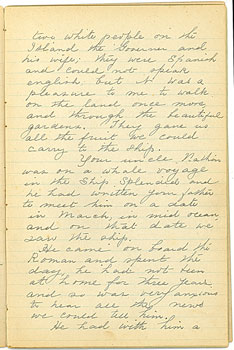 two white people on the
Island the Governer and
his wife; they were Spanish
and could not speak
english but it was a
pleasure to me to walk
on the land once more,
and through the beautiful
gardens. They gave us
all the fruit we could
carry to the ship.
Your uncle Nathan
was on a whale voyage
in the Ship Splendid and
he had written your father
to meet him on a date
in March, in mid ocean,
and on that date we
saw the ship.
He came on board the
Roman and spent the
day, he had not been
at home for three years
and so was very anxious
to hear all the news
we could tell him.
He had with him a